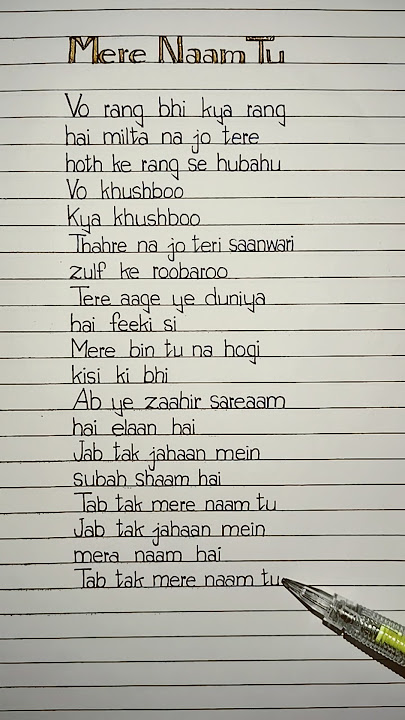 Mere Naam Tu
Vo rang bhi kya rang
hai milta na jo tere
hoth ke rang se hubahu
Vo khushboo
Kya khushboo
Thahre na jo teri saanwari
zulf ke roobaroo
Tere aage ye duniya
hai feeki si
Mere bin tu na hogi
kisi ki bhi
Ab ye zaahir sareaam
hai elaan hai
Jab tak jahaan mein
subah shaam hai
Tab tak mere naam tu
Jab tak jahaan mein
mera naam hai
Tab tak mere naam tu